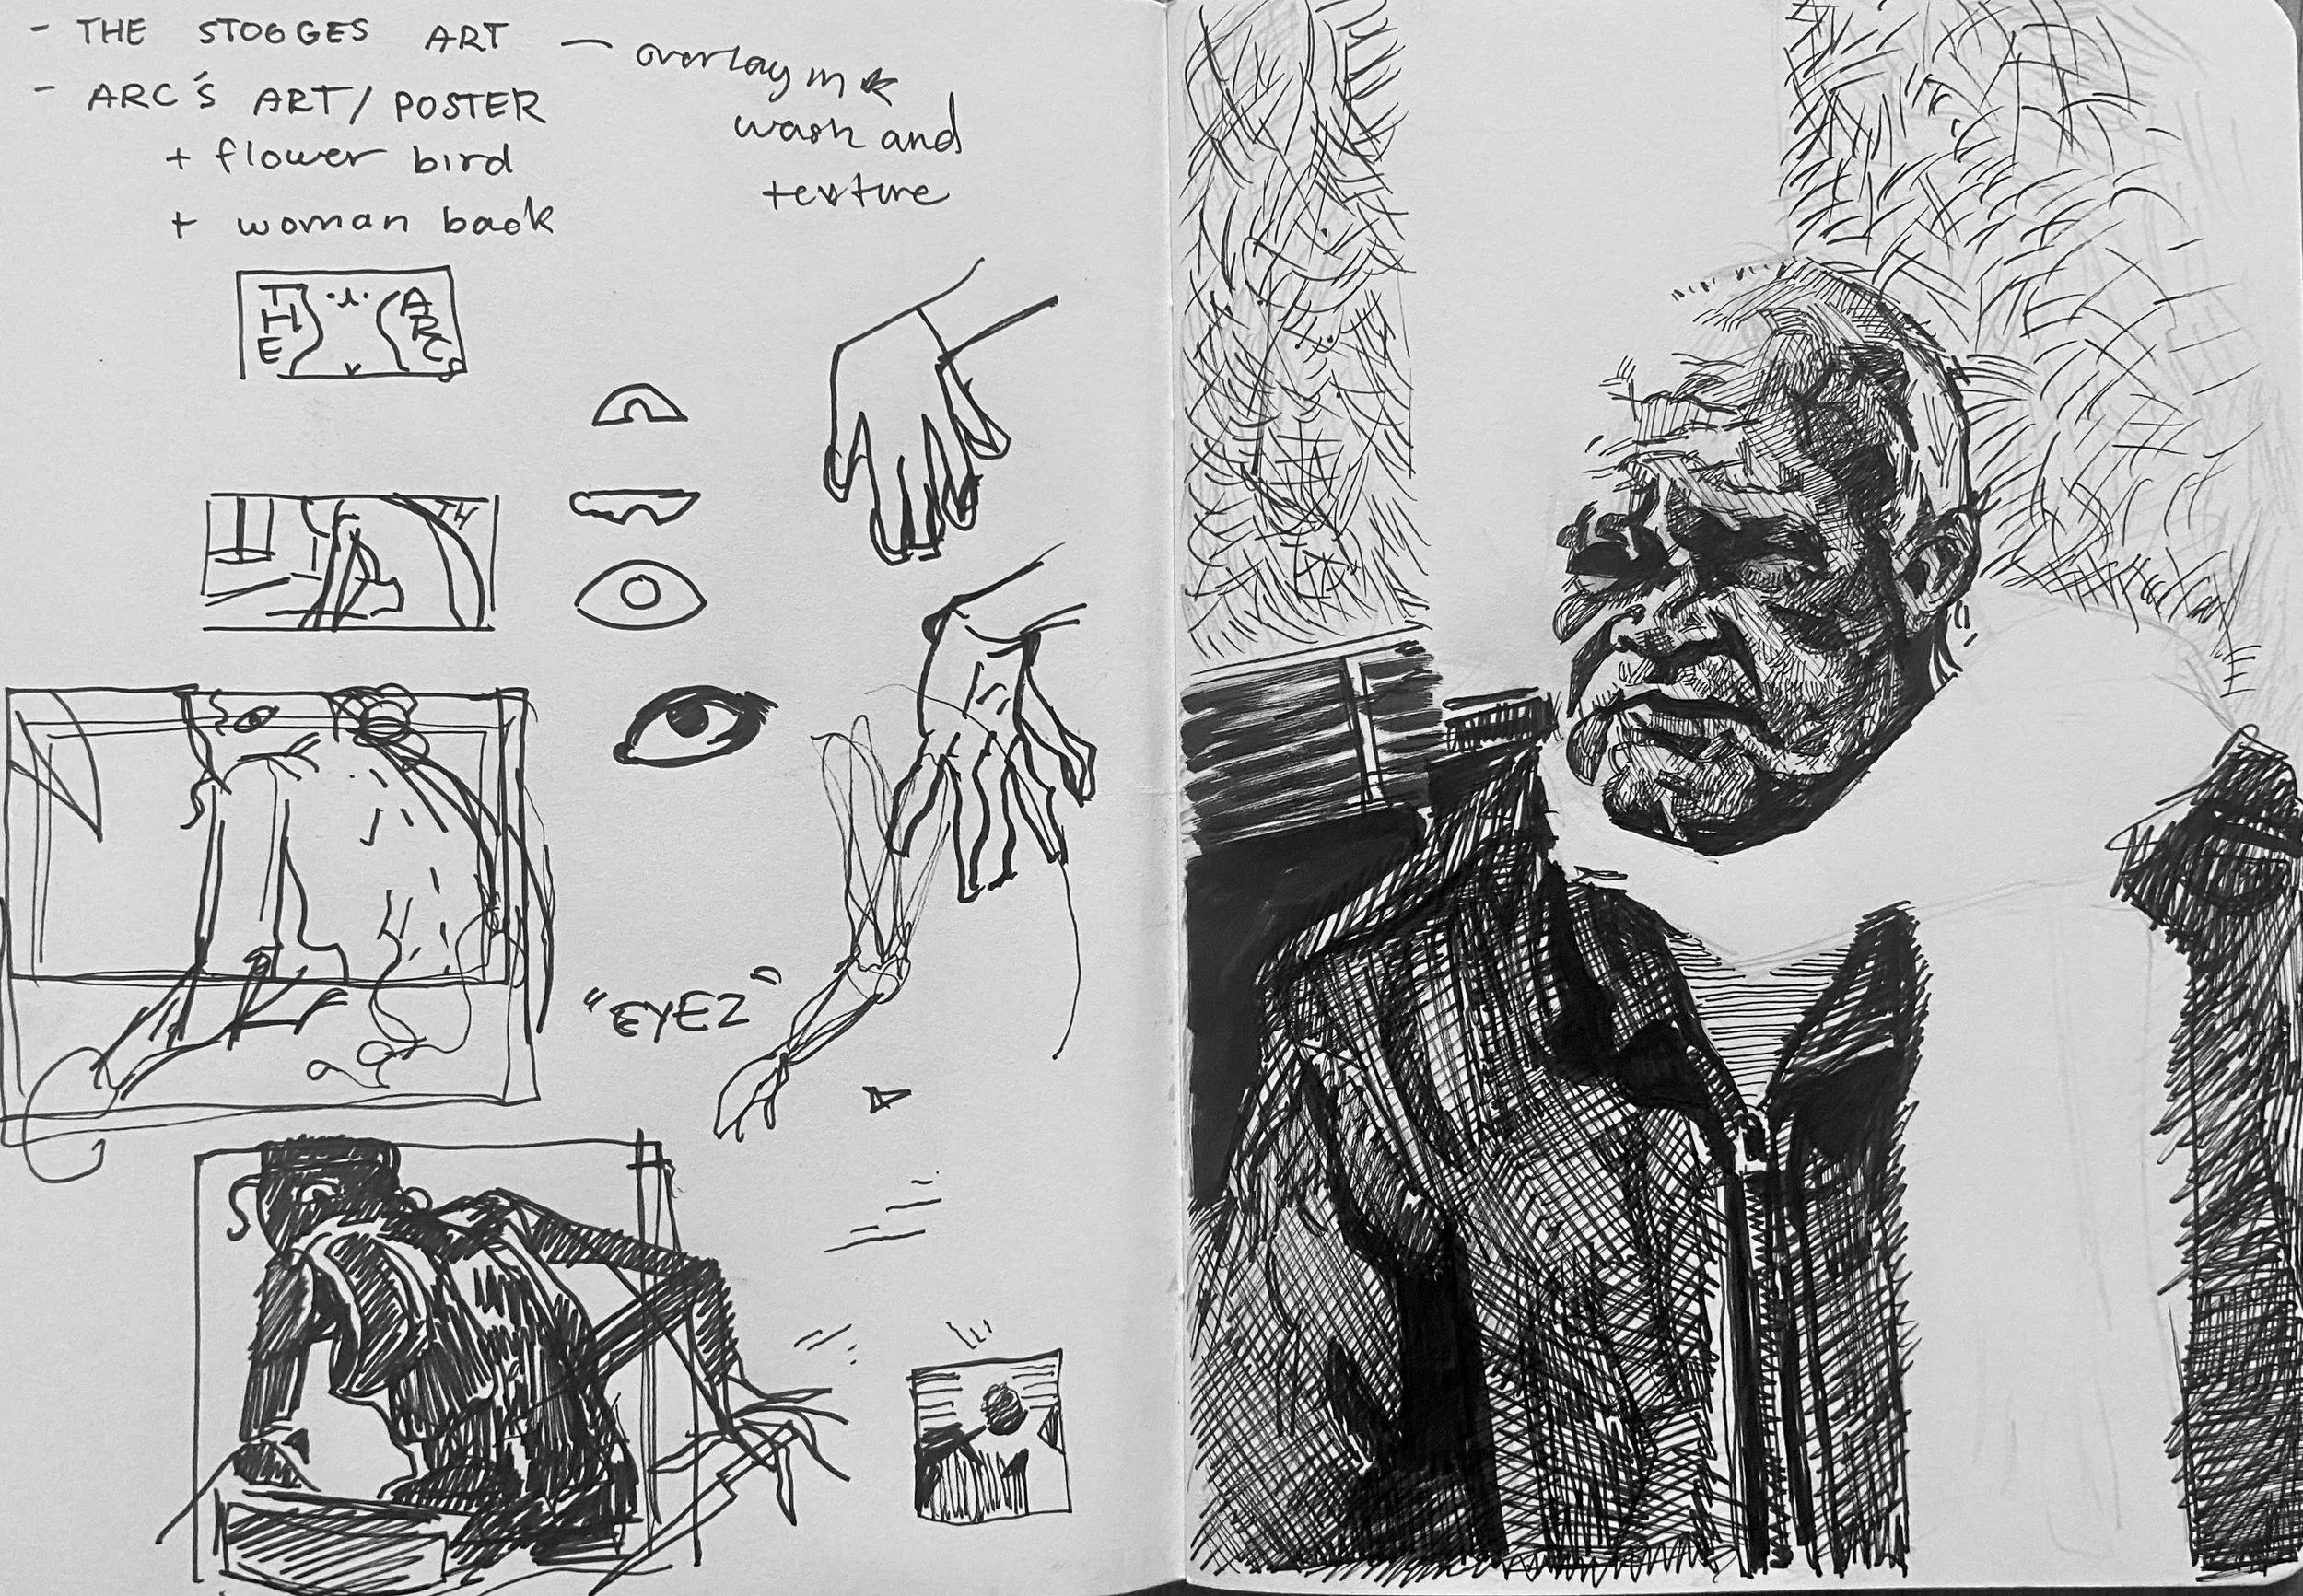 - THE STOOGES ART — overlay in
wash and
texture
- ARC'S ART / POSTER
+ flower bird
+ woman back
THE ARCS
TH
"EYEZ"